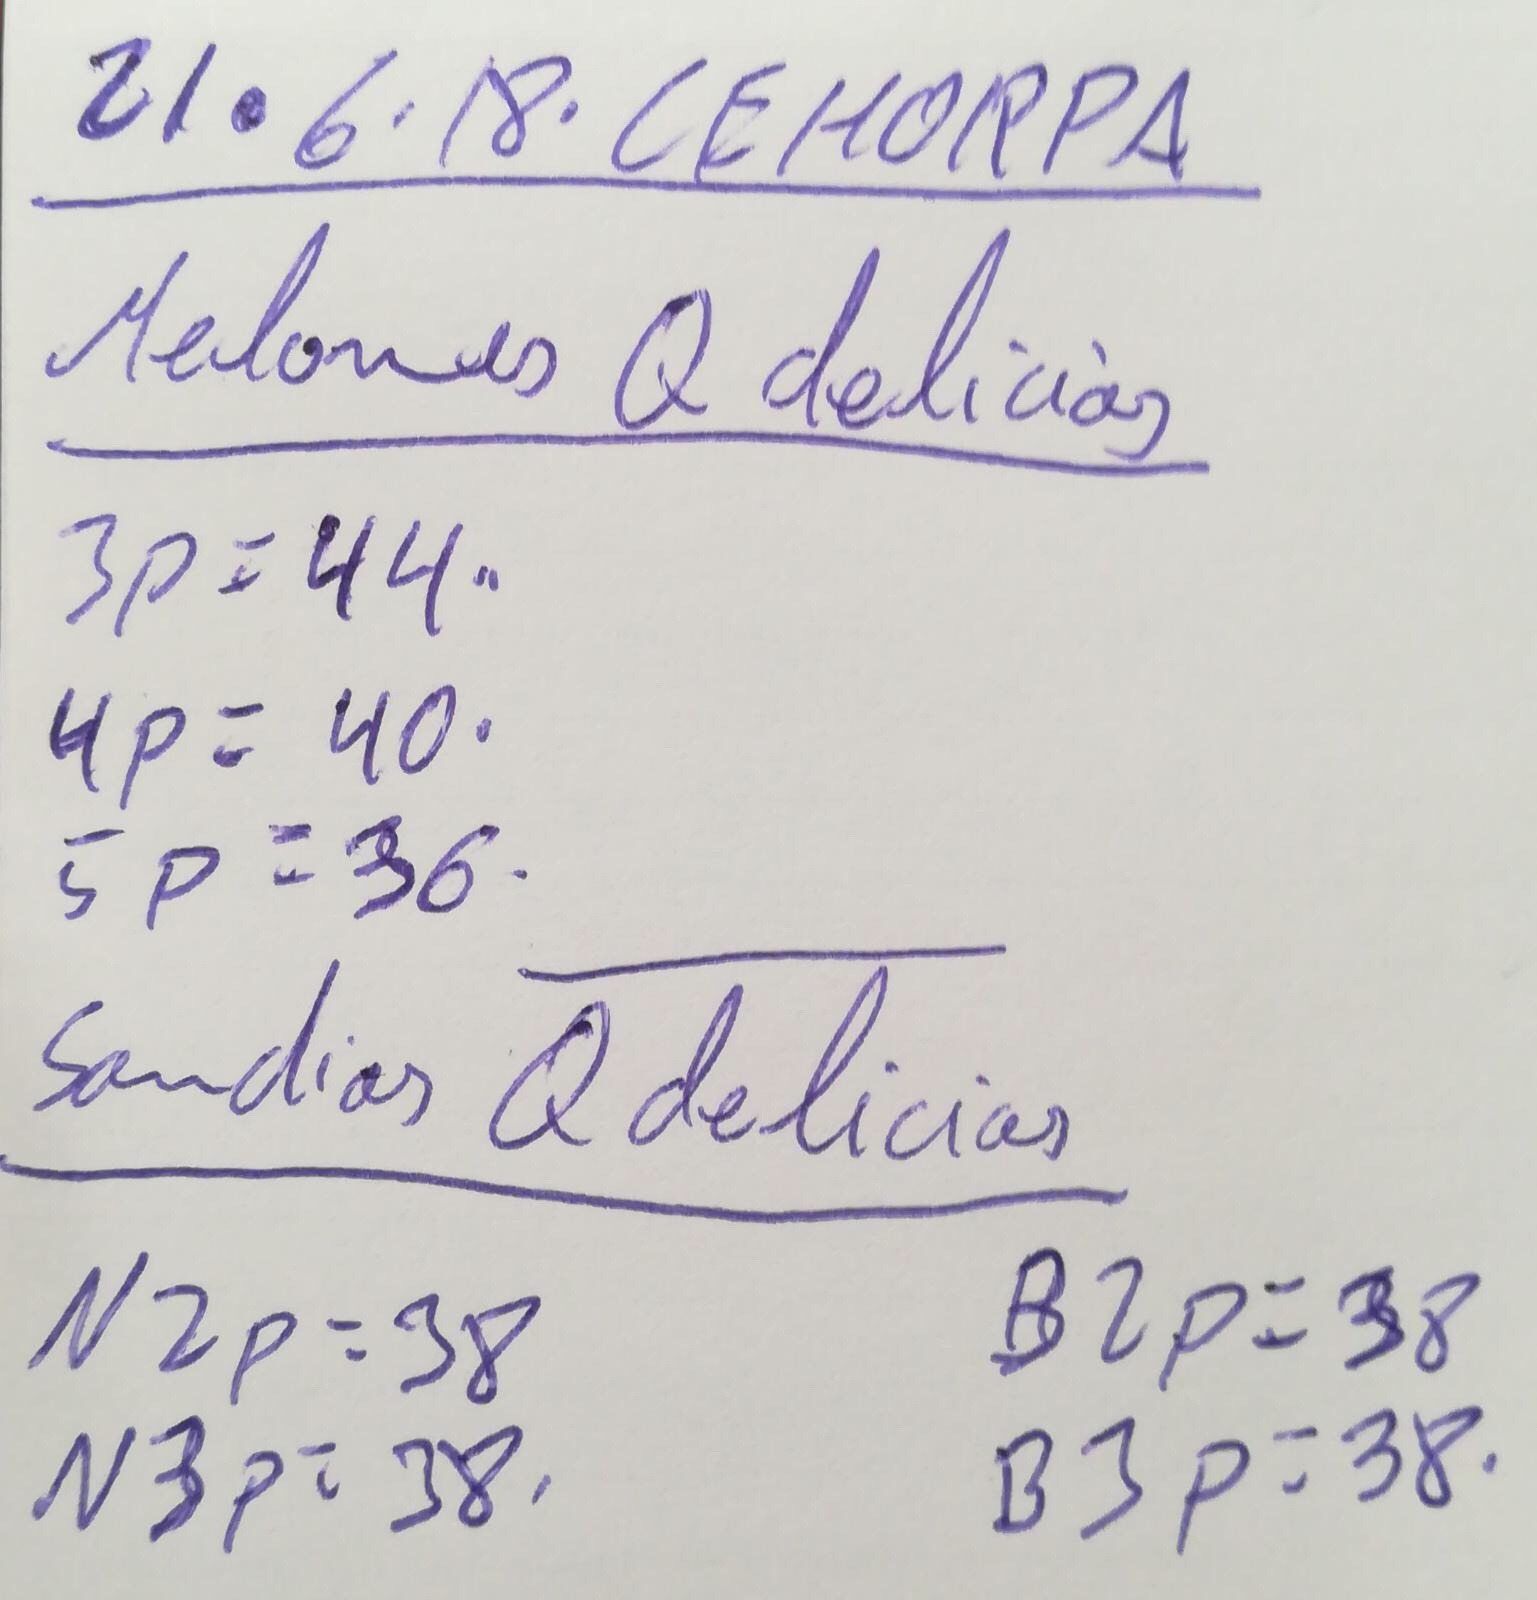 21.6.18. CEHORPA
Melones Q delicias
3p=44.
4p=40.
5p=36.
Sandias Q delicias
N2p=38 B2p=38
N3p=38. B3p=38.